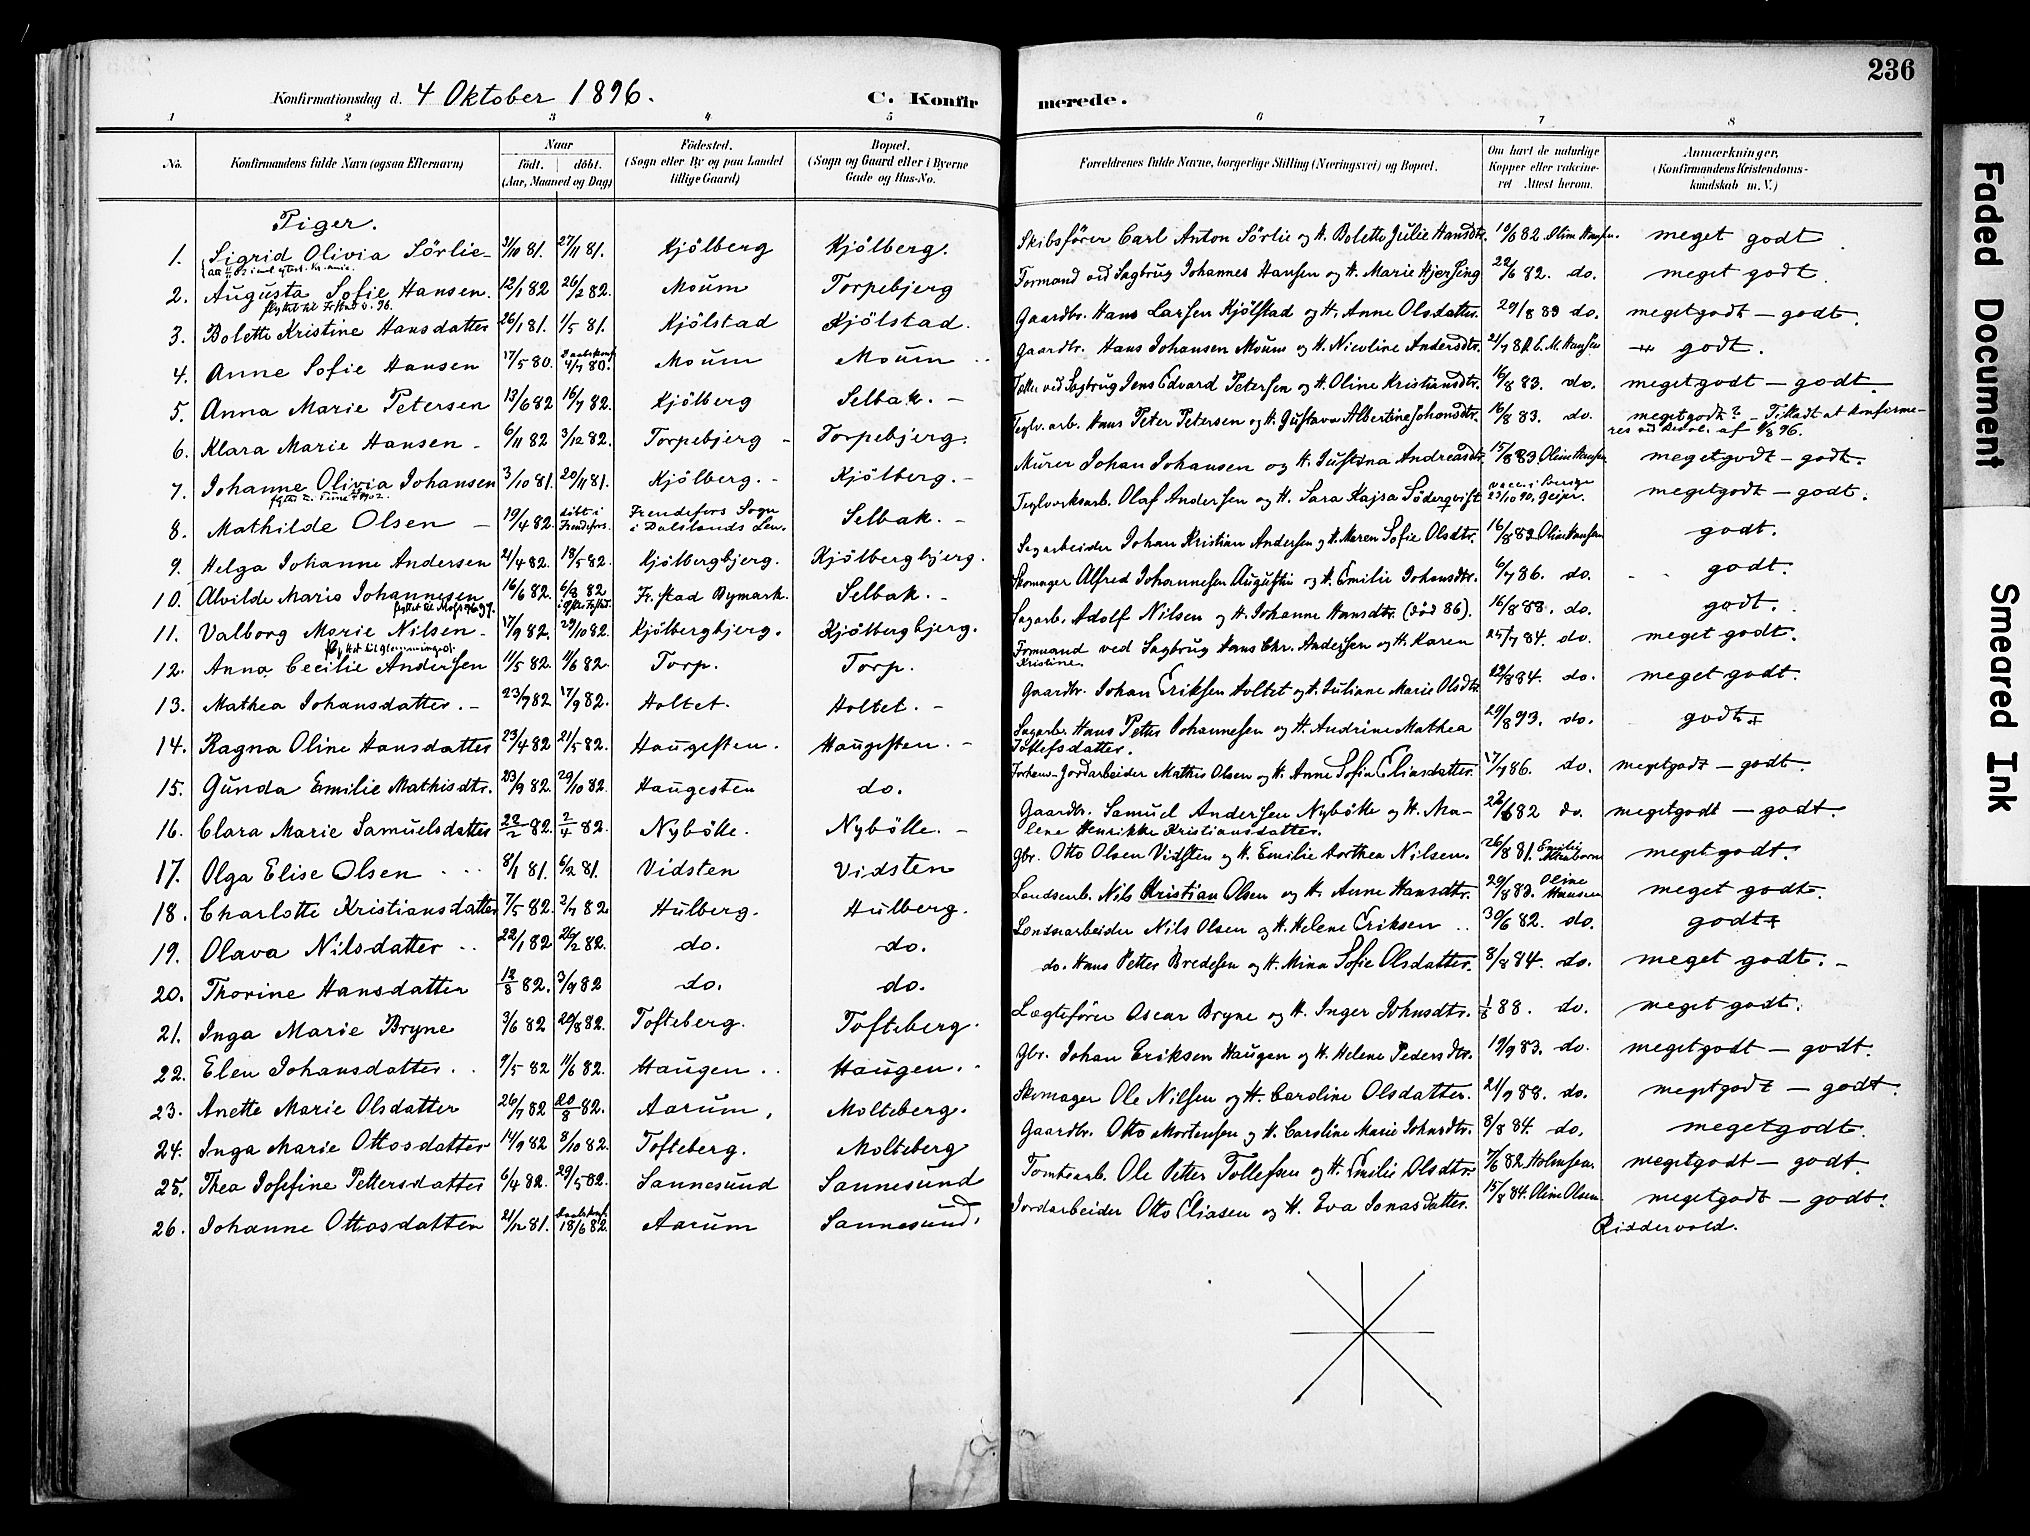 236
Konfirmationsdag d. 4 Oktober 1896. C. Konfirmerede.
1 2 3 4 5 6 7 8
No. Konfirmandens fulde Navn (ogsaa Efternavn) Naar født. døbt. (Aar, Maaned og Dag) Födested. (Sogn eller By og paa Landet tillige Gaard) Bopæl. (Sogn og Gaard eller i Byerne Gade og Hus-No. Forældrenes fulde Navne, borgerlige Stilling (Næringsvei) og Bopæl. Om havt de naturlige Kopper eller vakcineret Attest herom. Anmærkninger, (Konfirmandens Kristendomskundskab m. V.)
Piger.
1. Sigrid Olivia Sörlie 3/10 81. 27/11 81. Kjölberg Kjölberg. Skibsfører Carl Anton Sörlie og H. Bolette Julie Hansdtr. 10/6 82 Oline Hansen. meget godt
2. Augusta Sofie Hansen. 12/1 82 26/2 82. Moum Torpebjerg Formand ved Sagbrug Johannes Hansen og H. Marie Hjersing 22/6 82. do. meget godt.
flyttet til
3. Bolette Kristine Hansdatter 26/1 81. 1/5 81. Kjölstad Kjölstad. Gaardbr. Hans Larsen Kjölstad og H. Anne Olsdatter. 29/8 89 do. megetgodt - godt.
4. Anne Sofie Hansen 17/5 80. 4/7 80. Moum Moum Gaardbr. Hans Johansen Moum og H. Nicoline Andersdtr. godt.
5. Anna Marie Petersen 13/6 82 16/7 82. Kjölberg Selbak. - ved Sagbrug Jens Edvard Petersen og H. Oline Kristiansdtr. 16/8 83. do. megetgodt - godt
6. Klara Marie Hansen - 6/11 82 3/12 82. Torpebjerg - Torpebjerg. Teglv. arb. Hans Peter Petersen og H. Gustava Albertine Johansdtr. 16/8 83. do. megetgodt? - Tilladt at konfirmeres ved af 4/8 96.
7. Johanne Olivia Johansen 3/10 81. 20/11 81. Kjölberg. - Kjölberg. - Murer Johan Johansen og H. Justina Andreasdtr. 15/8 83. Oline Hansen megetgodt - godt.
8. Mathilde Olsen - 19/4 82. döbt i Frendefors. Frendefors Sogn i Dalslands Len. Selbak. - Teglverksarb. Olaf Andersen og H. Sara Kajsa Söderqvist 23/10 90, Geijer. megetgodt - godt.
9. Helga Johanne Andersen 21/4 82. 18/5 82. Kjölbergbjerg. Kjölbergbjerg. Sagarbeider Johan Kristian Andersen og H. Maren Sofie Olsdtr. 16/8 82 Oline Hansen godt.
10. Alvilde Marie Johannesen 16/6 82. 6/8 82 Fr.stad Bymark. Selbak. - Skomager Alfred Johannesen Augustin og H. Emilie Johansdtr. 6/7 86. do. godt.
11. Valborg Marie Nilsen - 17/9 82. 29/10 82. Kjölbergbjerg. Kjölbergbjerg. Sagarb. Adolf Nilsen og H. Johanne Hansdtr. (död 86). 16/8 88. do. godt.
12. Anna Cecilie Andersen 11/5 82. 11/6 82. Torp. Torp. Formand ved Sagbrug Hans Chr. Andersen og H. Karen Kristine. 25/7 84. do. meget godt.
13. Mathea Johansdatter. - 23/7 82 17/9 82. Holtet. Holtet. - Gaardbr. Johan Eriksen Holtet og H. Juliane Marie Olsdtr. 19/8 84. do. meget godt.
14. Ragna Oline Hansdatter 23/4 82 21/5 82. Haugesten. Haugesten. - Sagarb. Hans Petter Johannesen og H. Andrine Mathea Tollefsdatter. 29/8 93. do. godt+
15. Gunda Emilie Mathisdtr. 23/9 82. 29/10 82. Haugesten do. Jordarbeider Mathis Olsen og H. Anne Sofie Eliasdatter. 17/7 86. do. megetgodt - godt.
16. Clara Marie Samuelsdatter 22/2 82. 2/4 82. Nybölle. Nybölle. - Gaardbr. Samuel Andersen Nybölle og H. Malene Henrikke Kristiansdatter. 22/6 82 do. megetgodt - godt.
17. Olga Elise Olsen 8/1 81. 6/2 81. Vidsten Vidsten Gbr. Otto Olsen Vidsten og H. Emilie Dorthea Nilsen. 26/8 81. Emilie meget godt.
18. Charlotte Kristiansdatter 7/5 82. 2/7 82 Hulberg. Hulberg. Landsarb. Nils Kristian Olsen og H. Anne Hansdtr. 29/8 83. Oline Hansen meget godt.
19. Olava Nilsdatter 22/1 82 26/2 82. do. do. Londsarbeider Nils Olsen og H. Helene Eriksen 30/6 82. do. godt+
20. Thorine Hansdatter 12/8 82. 3/9 82 do. do. do. Hans Petter Bredesen og H. Mina Sofie Olsdatter. 8/8 84. do. meget godt. -
21. Inga Marie Bryne 3/6 82 20/8 82. Tofteberg. Tofteberg. Lægtefører Oscar Bryne og H. Inger Johnsdtr. 1/8 88. do. meget godt.
22. Elen Johansdatter. 9/5 82 11/6 82. Haugen Haugen. Gbr. Johan Eriksen Haugen og H. Helene Pedersdtr. 19/9 83. do. megetgodt - godt.
23. Anette Marie Olsdatter 26/7 82 20/8 82. Aarum, Molteberg. Skomager Ole Nilsen og H. Caroline Olsdatter. 21/9 88. do. megetgodt - godt.
24. Inga Marie Ottosdatter 14/9 82 8/10 82. Tofteberg. Molteberg Gaardbr. Otto Mortensen og H. Caroline Marie Johnsdtr. 8/8 84. do. megetgodt.
25. Thea Josefine Pettersdatter 6/4 82. 29/5 82. Sannesund Sannesund Tomtearb. Ole Petter Tollefsen og H. Emilie Olsdtr. 82 Holmsen. megetgodt - godt.
26. Johanne Ottosdatter 21/12 81. 18/6 82. Aarum Sannesund. Jordarbeider Otto Eliasen og H. Eva Jonasdatter. 15/8 84. Oline Olsen megetgodt - godt.
Riddervold.
Faded Document
Smeared Ink